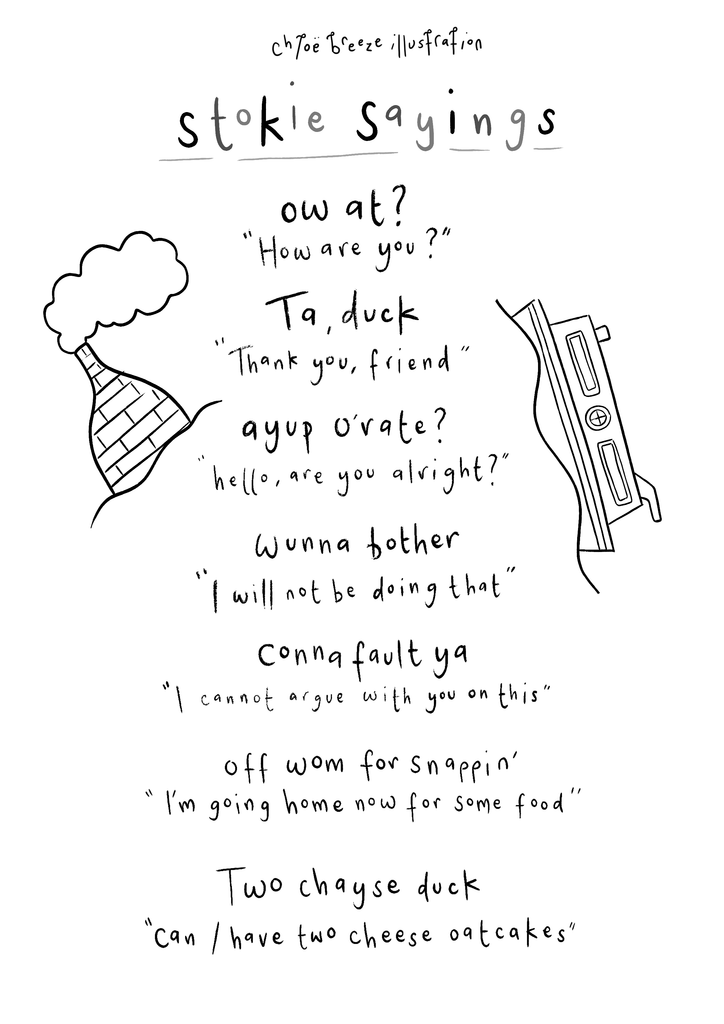 chloë breeze illustration
stokie sayings
ow at?
"How are you?"
Ta, duck
"Thank you, friend"
ayup o'rate?
"hello, are you alright?"
Wunna bother
"I will not be doing that"
Conna fault ya
"I cannot argue with you on this"
off wom for snappin'
"I'm going home now for some food"
Two chayse duck
"Can I have two cheese oatcakes"